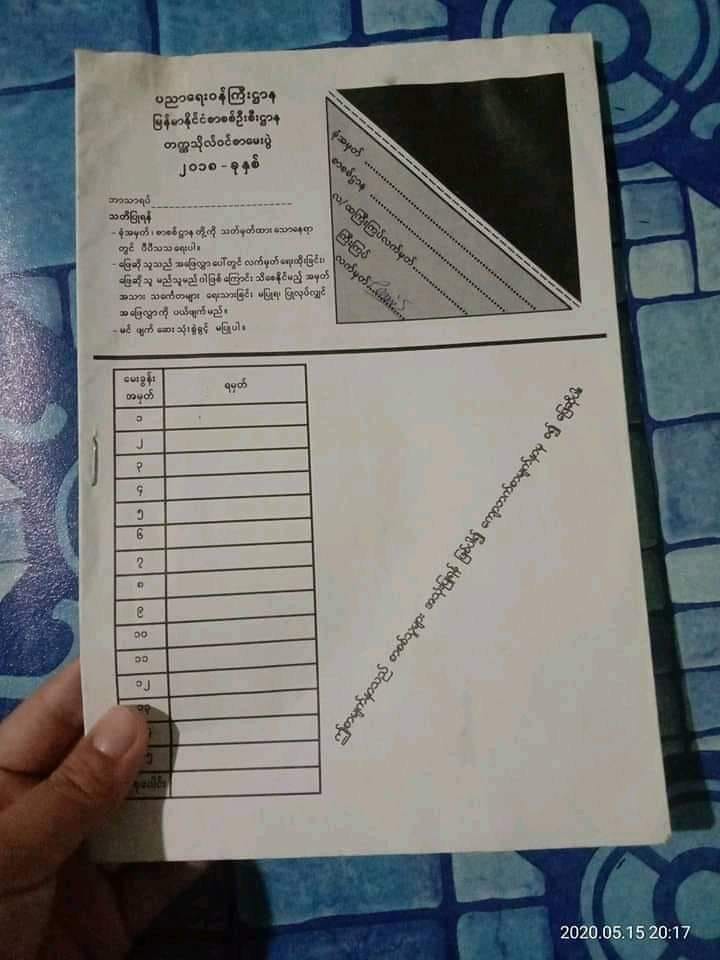 ပညာရေးဝန်ကြီးဌာန
မြန်မာနိုင်ငံစာစစ်ဦးစီးဌာန
တက္ကသိုလ်ဝင်စာမေးပွဲ
၂၀၁၈ - ခုနှစ်
ဘာသာရပ်
သတိပြုရန်
- ခုံအမှတ်၊ စာစစ်ဌာန တို့ကို သတ်မှတ်ထားသောနေရာ
တွင် ပီပီသသ ရေးပါ။
- ဖြေဆိုသူသည် အဖြေလွှာပေါ်တွင် လက်မှတ်ရေးထိုးခြင်း၊
ဖြေဆိုသူ မည်သူမည်ဝါဖြစ်ကြောင်း သိစေနိုင်မည့် အမှတ်
အသား သင်္ကေတများ ရေးသားခြင်း မပြုရ၊ ပြုလုပ်လျှင်
အဖြေလွှာကို ပယ်ဖျက်မည်။
- မင် ဖျက် ဆေး သုံးစွဲခွင့် မပြုပါ။
ခုံအမှတ်
စာစစ်ဌာန
လ/ထကြီးကြပ်လက်မှတ်
ကြီးကြပ်
လက်မှတ်
မေးခွန်း ရမှတ်
အမှတ်
၁
၂
၃
၄
၅
၆
၇
၈
၉
၁၀
၁၁
၁၂
၁၃
၅
ဤစာမျက်နှာသည် စာစစ်သူများ အသုံးပြုရန် ဖြစ်ပါ၍ ကျောဘက်စာမျက်နှာမှ စ၍ ဖြေဆိုပါ။
2020.05.15 20:17